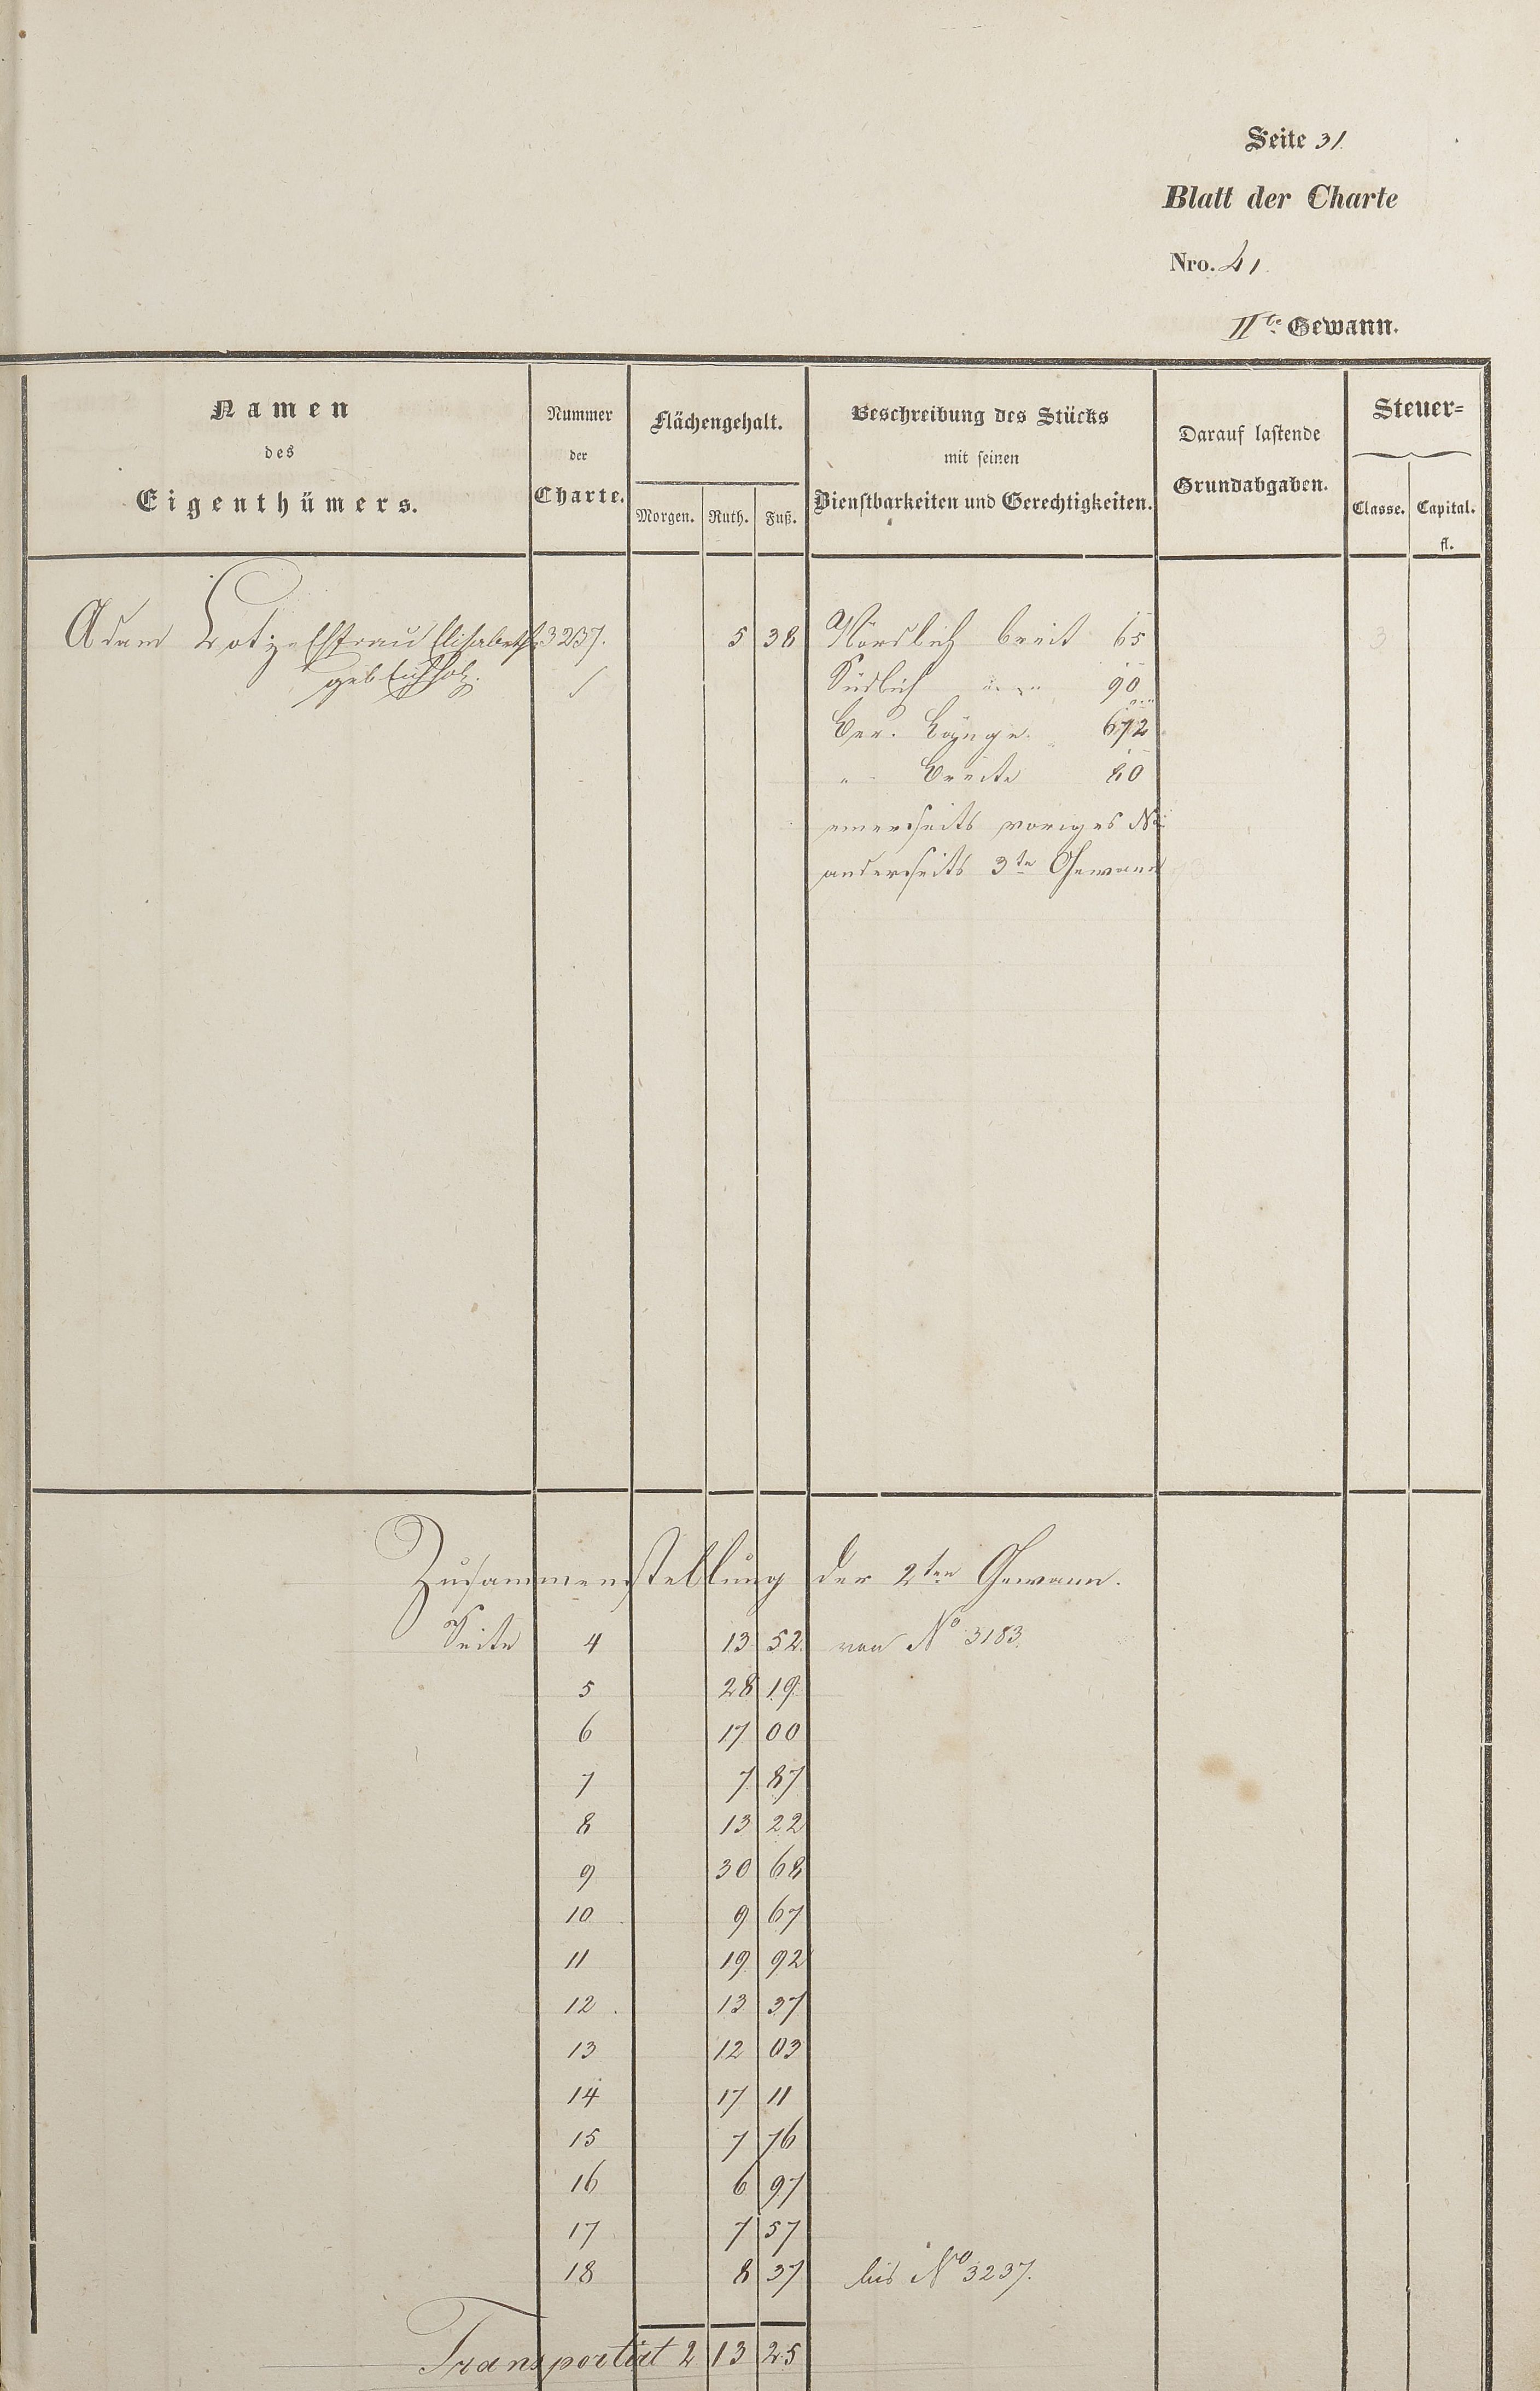 Seite 31
Blatt der Charte
Nro. 41
IIte Gewann.
Namen
des
Eigenthümers.
Nummer
der
Charte.
Flächengehalt.
Morgen. Ruth. Fuß.
Beschreibung des Stücks
mit seinen
Dienstbarkeiten und Gerechtigkeiten.
Darauf lastende
Grundabgaben.
Steuer=
Classe. Capital.
fl.
Adam Lotz Ehfrau Elisabeth 3237. 5 38 Nördlich breit 65
geb Eichholz. Südlich 90
Ber. Länge 672
" Breite 80
einerseits voriges No
anderseits 3te Gewann
Zusammenstellung der 2ten Gewann.
Seite 4 13 52 von No 3183
5 28 19
6 17 00
7 7 87
8 13 22
9 30 68
10 9 67
11 19 92
12 13 37
13 12 03
14 17 11
15 7 76
16 6 97
17 7 57
18 8 37 bis No 3237.
Transportirt 2 13 25